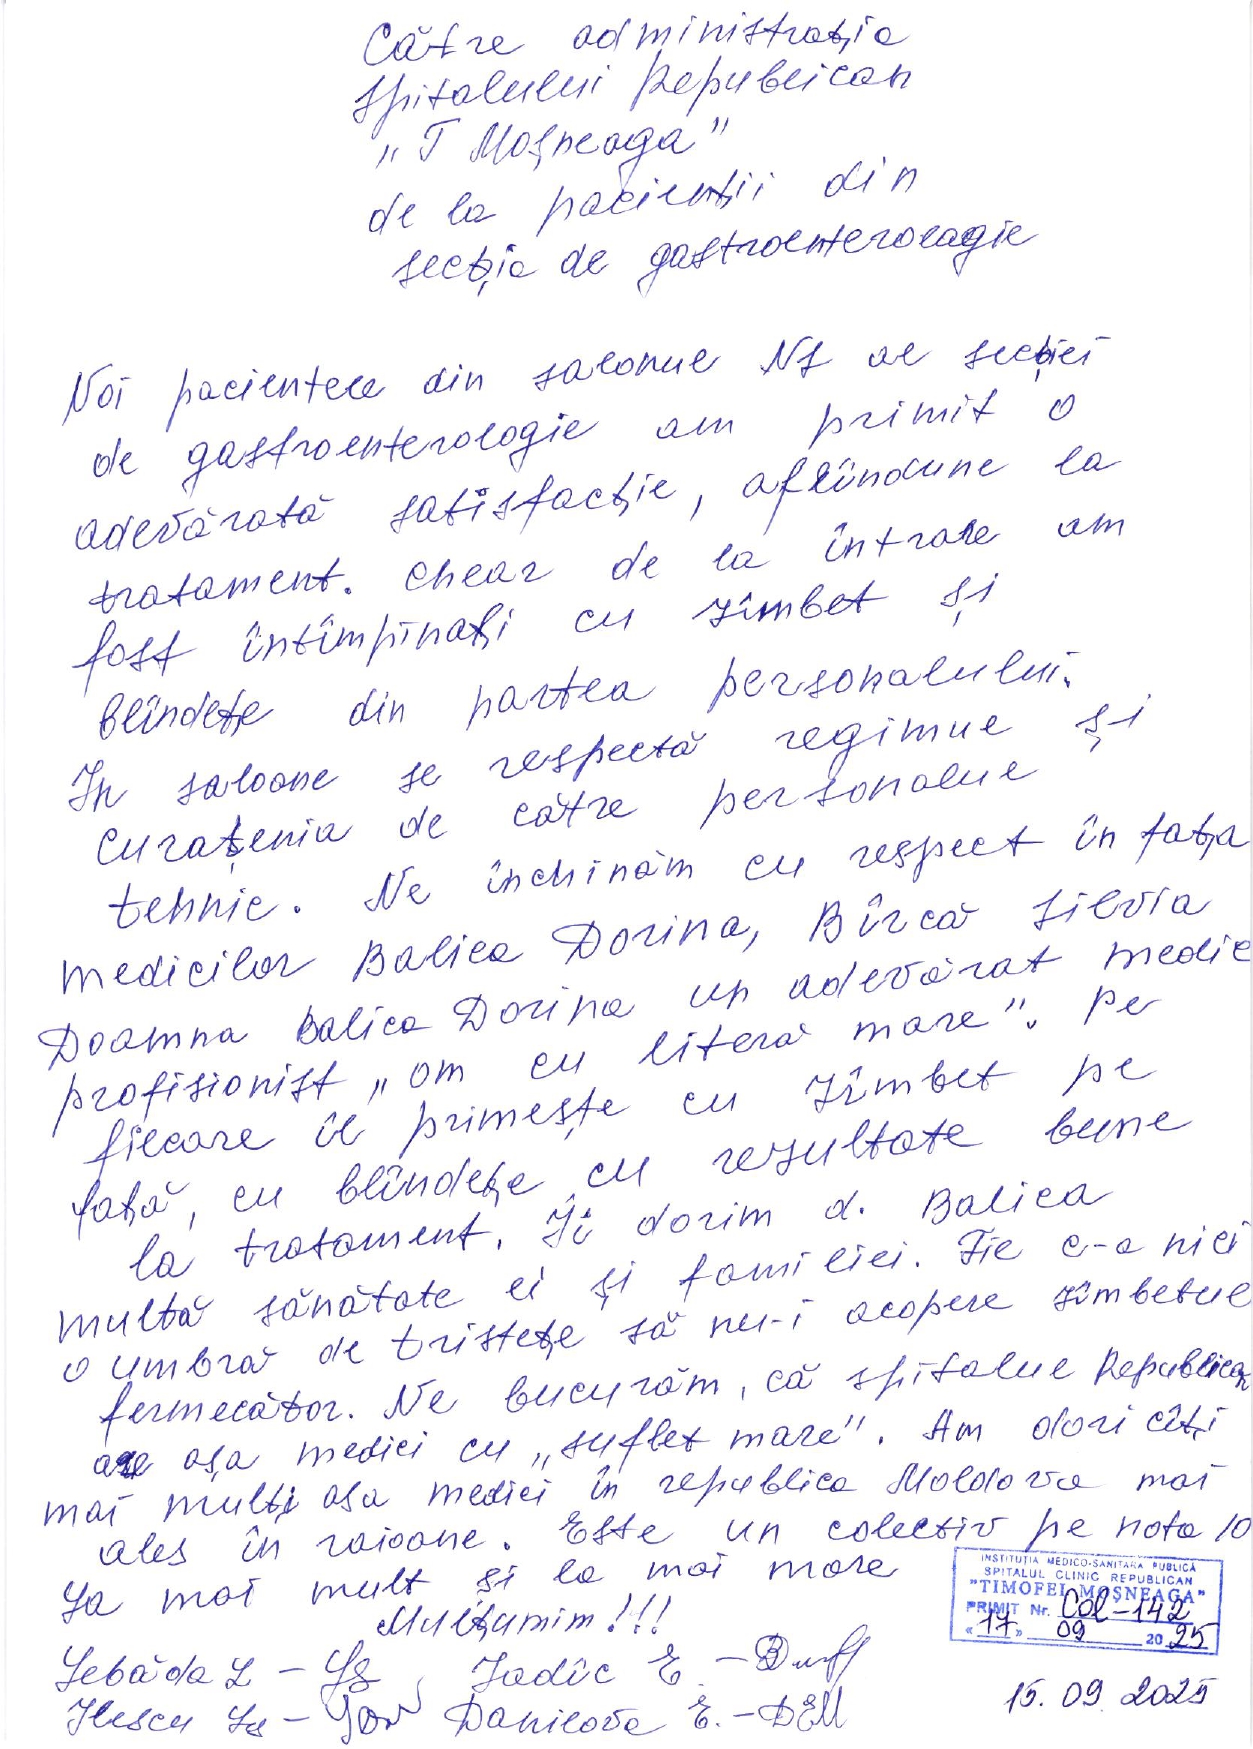 Către administrația
Spitalului Republican
„T Moșneaga"
de la pacienții din
secția de gastroenterologie
Noi pacientele din salonul N1 al secției
de gastroenterologie am primit o
adevărată satisfacție, aflîndune la
tratament. Chear de la întrare am
fost întîmpinați cu zîmbet și
blîndețe din partea personalului.
In saloane se respectă regimul și
curațenia de către personalul
tehnic. Ne închinăm cu respect în fața
medicilor Balica Dorina, Bîrcă Silvia
Doamna Balica Dorina un adevărat medic
profisionist „om cu literă mare". Pe
fiecare îl primește cu zîmbet pe
față, cu blîndețe cu rezultate bune
la tratament. Îi dorim d. Balica
multă sănătate ei și familiei. Fie c-a nici
o umbră de tristețe să nu-i acopere zîmbetul
fermecător. Ne bucurăm, că spitalul Republican
are așa medici cu „suflet mare". Am dori cîți
mai mulți așa medici în republica Moldova mai
ales în raioane. Este un colectiv pe nota 10
La mai mult și la mai mare
Mulțumim!!!
INSTITUȚIA MEDICO-SANITARĂ PUBLICĂ
SPITALUL CLINIC REPUBLICAN
"TIMOFEI MOȘNEAGA"
PRIMIT Nr. Col-142
«17» 09 2025
Danilova E.
15.09.2025